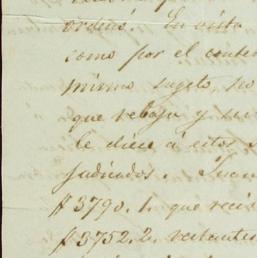 ordenó. En vista
como por el conten
mismo sujeto, po
que rebaja y
le diese á estos
Judicados. Juan
$3790.1. que reci
$3752.2. restantes